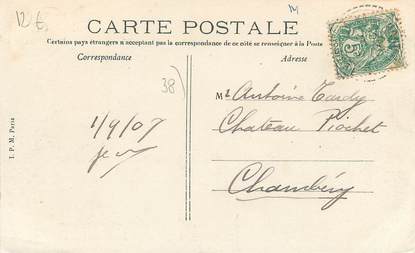 12 €
M
CARTE POSTALE
Certains pays étrangers n'acceptant pas la correspondance de ce côté se renseigner à la Poste
Correspondance
Adresse
5
38
Mr Antoine Tardy
Chateau Pichet
Chambéry
1/9/07
I. P. M. Paris